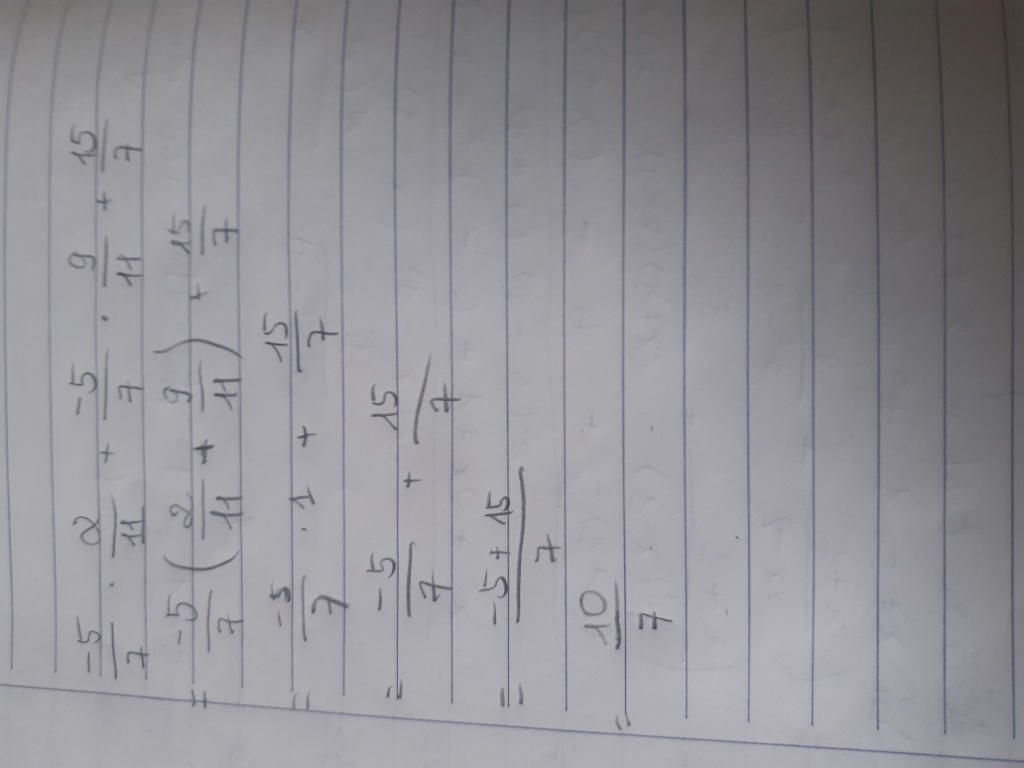 -5/7 . 2/11 + -5/7 . 9/11 + 15/7
= -5/7 (2/11 + 9/11) + 15/7
= -5/7 . 1 + 15/7
= -5/7 + 15/7
= -5+15/7
= 10/7